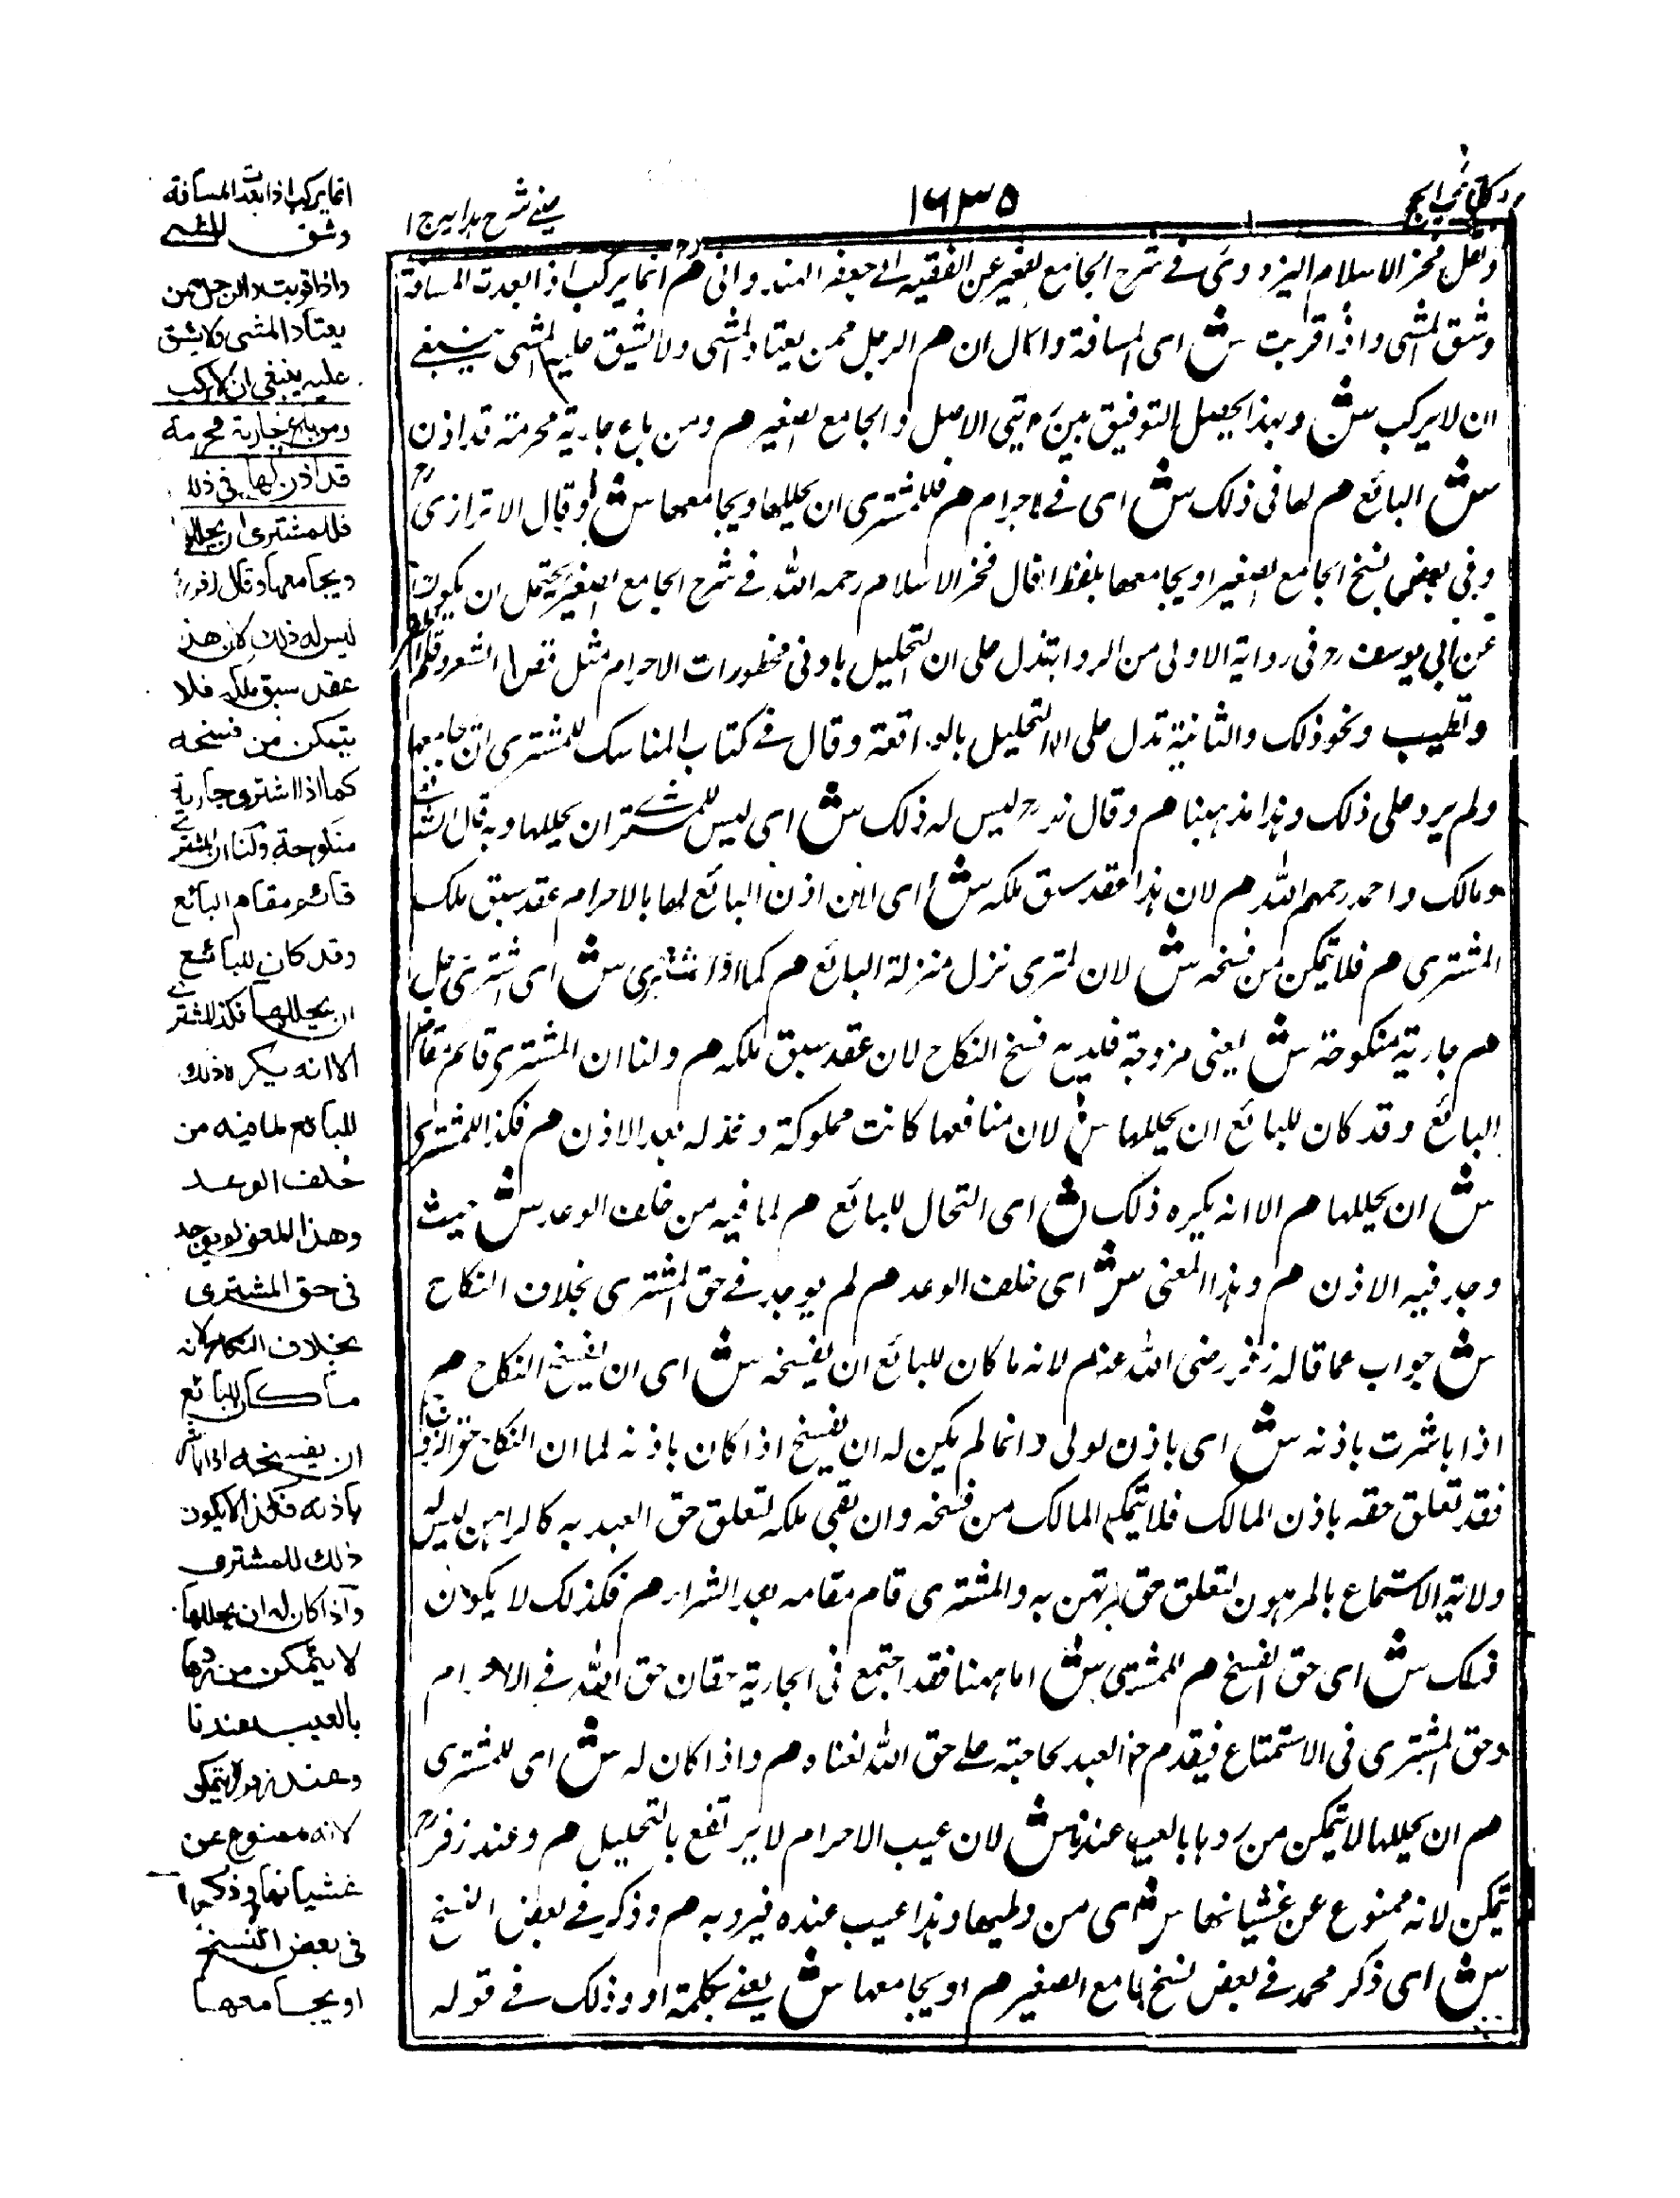 كتاب الحج
١٦٣٥
عينى شرح هداية ج ١
ونقل فخر الاسلام البزدوى فى شرح الجامع الصغير عن الفقيه ابى جعفر الهندوانى م انما يركب اذا بعدت المسافة
وشق المشى واذا قربت ش اى المسافة واكال ان م الرجل ممن يعتاد المشى ولا يشق عليه المشى ينبغى
ان لا يركب ش وبهذا يحصل التوفيق بين روايتى الاصل والجامع الصغير م ومن باع جارية محرمة قد اذن
ش البائع م لها فى ذلك ش اى فى الاحرام م فللمشترى ان يحللها ويجامعها ش وقال الاترازى رح
وفى بعض نسخ الجامع الصغير او يجامعها بلفظ او قال فخر الاسلام رحمه الله فى شرح الجامع الصغير يحتمل ان يكون
عن ابى يوسف رح فى رواية الاولى من الروا تدل على ان التحليل بادنى محظورات الاحرام مثل قص الشعر وقلم الظفر
وتطييب ونحو ذلك والثانية تدل على ان التحليل بالمواقعة وقال فى كتاب المناسك للمشترى ان يجامعها
ولم يرد على ذلك وهذا مذهبنا م وقال زفر رح ليس له ذلك ش اى ليس للمشترى ان يحللها وبه قال الشافعى
ومالك واحمد رحمهم الله م لان هذا عقد سبق ملكه ش اى لان اذن البائع لها بالاحرام عقد سبق ملك
المشترى م فلا يتمكن من فسخه ش لان المشترى نزل منزلة البائع م كما اذا اشترى ش اى اشترى رجل
م جارية منكوحة ش يعنى مزوجة فليس له فسخ النكاح لان عقد سبق ملكه م ولنا ان المشترى قائم مقام
البائع وقد كان للبائع ان يحللها ش لان منافعها كانت مملوكة وكذا له بعد الاذن م فكذا للمشترى
ش ان يحللها م الا انه يكره ذلك ش اى التحال للبائع م لما فيه من خلف الوعد ش حيث
وجد فيه الاذن م وهذا المعنى ش اى خلف الوعد م لم يوجد فى حق المشترى بخلاف النكاح
ش جواب عما قاله زفر رضى الله عنه م لانه ما كان للبائع ان يفسخه ش اى ان يفسخ النكاح م
اذا باشرت باذنه ش اى باذن المولى وانما لم يكن له ان يفسخ اذا كان باذنه لما ان النكاح حق الزوج
فقد تعلق حقه باذن المالك فلا يتمكن المالك من فسخه وان بقى ملكه لتعلق حق العبد به كالراهن ليس له
ولاية الاستمتاع بالمرهون لتعلق حق المرتهن به والمشترى قام مقامه بعد الشراء م فكذلك لا يكون
ذلك ش اى حق الفسخ م للمشترى ش اما ههنا فقد اجتمع فى الجارية حقان حق الله فى الاحرام
وحق المشترى فى الاستمتاع فيقدم حق العبد لحاجته على حق الله لغناه م واذا كان له ش اى للمشترى
م ان يحللها لا يتمكن من ردها بالعيب عندنا ش لان عيب الاحرام لا يرتفع بالتحليل م وعند زفر رح
يتمكن لانه ممنوع عن غشيانها ش اى من وطيها وهذا عيب عنده فيرد به م وذكر فى بعض النسخ
ش اى ذكر محمد فى بعض نسخ الجامع الصغير م او يجامعها ش يعنى بكلمة او وذلك فى قوله
انما يركب اذا بعدت المسافة
وشق المشى
واذا قربت والرجل ممن
يعتاد المشى ولا يشق
عليه ينبغى ان لا يركب
ومن باع جارية محرمة
قد اذن لها فى ذلك
فللمشترى ان يحللها
ويجامعها وقال زفر رح
ليس له ذلك لان هذا
عقد سبق ملكه فلا
يتمكن من فسخه
كما اذا اشترى جارية
منكوحة ولنا ان المشترى
قائم مقام البائع
وقد كان للبائع
ان يحللها فكذا للمشترى
الا انه يكره ذلك
للبائع لما فيه من
خلف الوعد
وهذا المعنى لم يوجد
فى حق المشترى
بخلاف النكاح لانه
ما كان للبائع
ان يفسخه اذا باشرت
باذنه فكذا لا يكون
ذلك للمشترى
واذا كان له ان يحللها
لا يتمكن من ردها
بالعيب عندنا
وعند زفر يتمكن
لانه ممنوع عن
غشيانها وذكر
فى بعض النسخ
او يجامعها